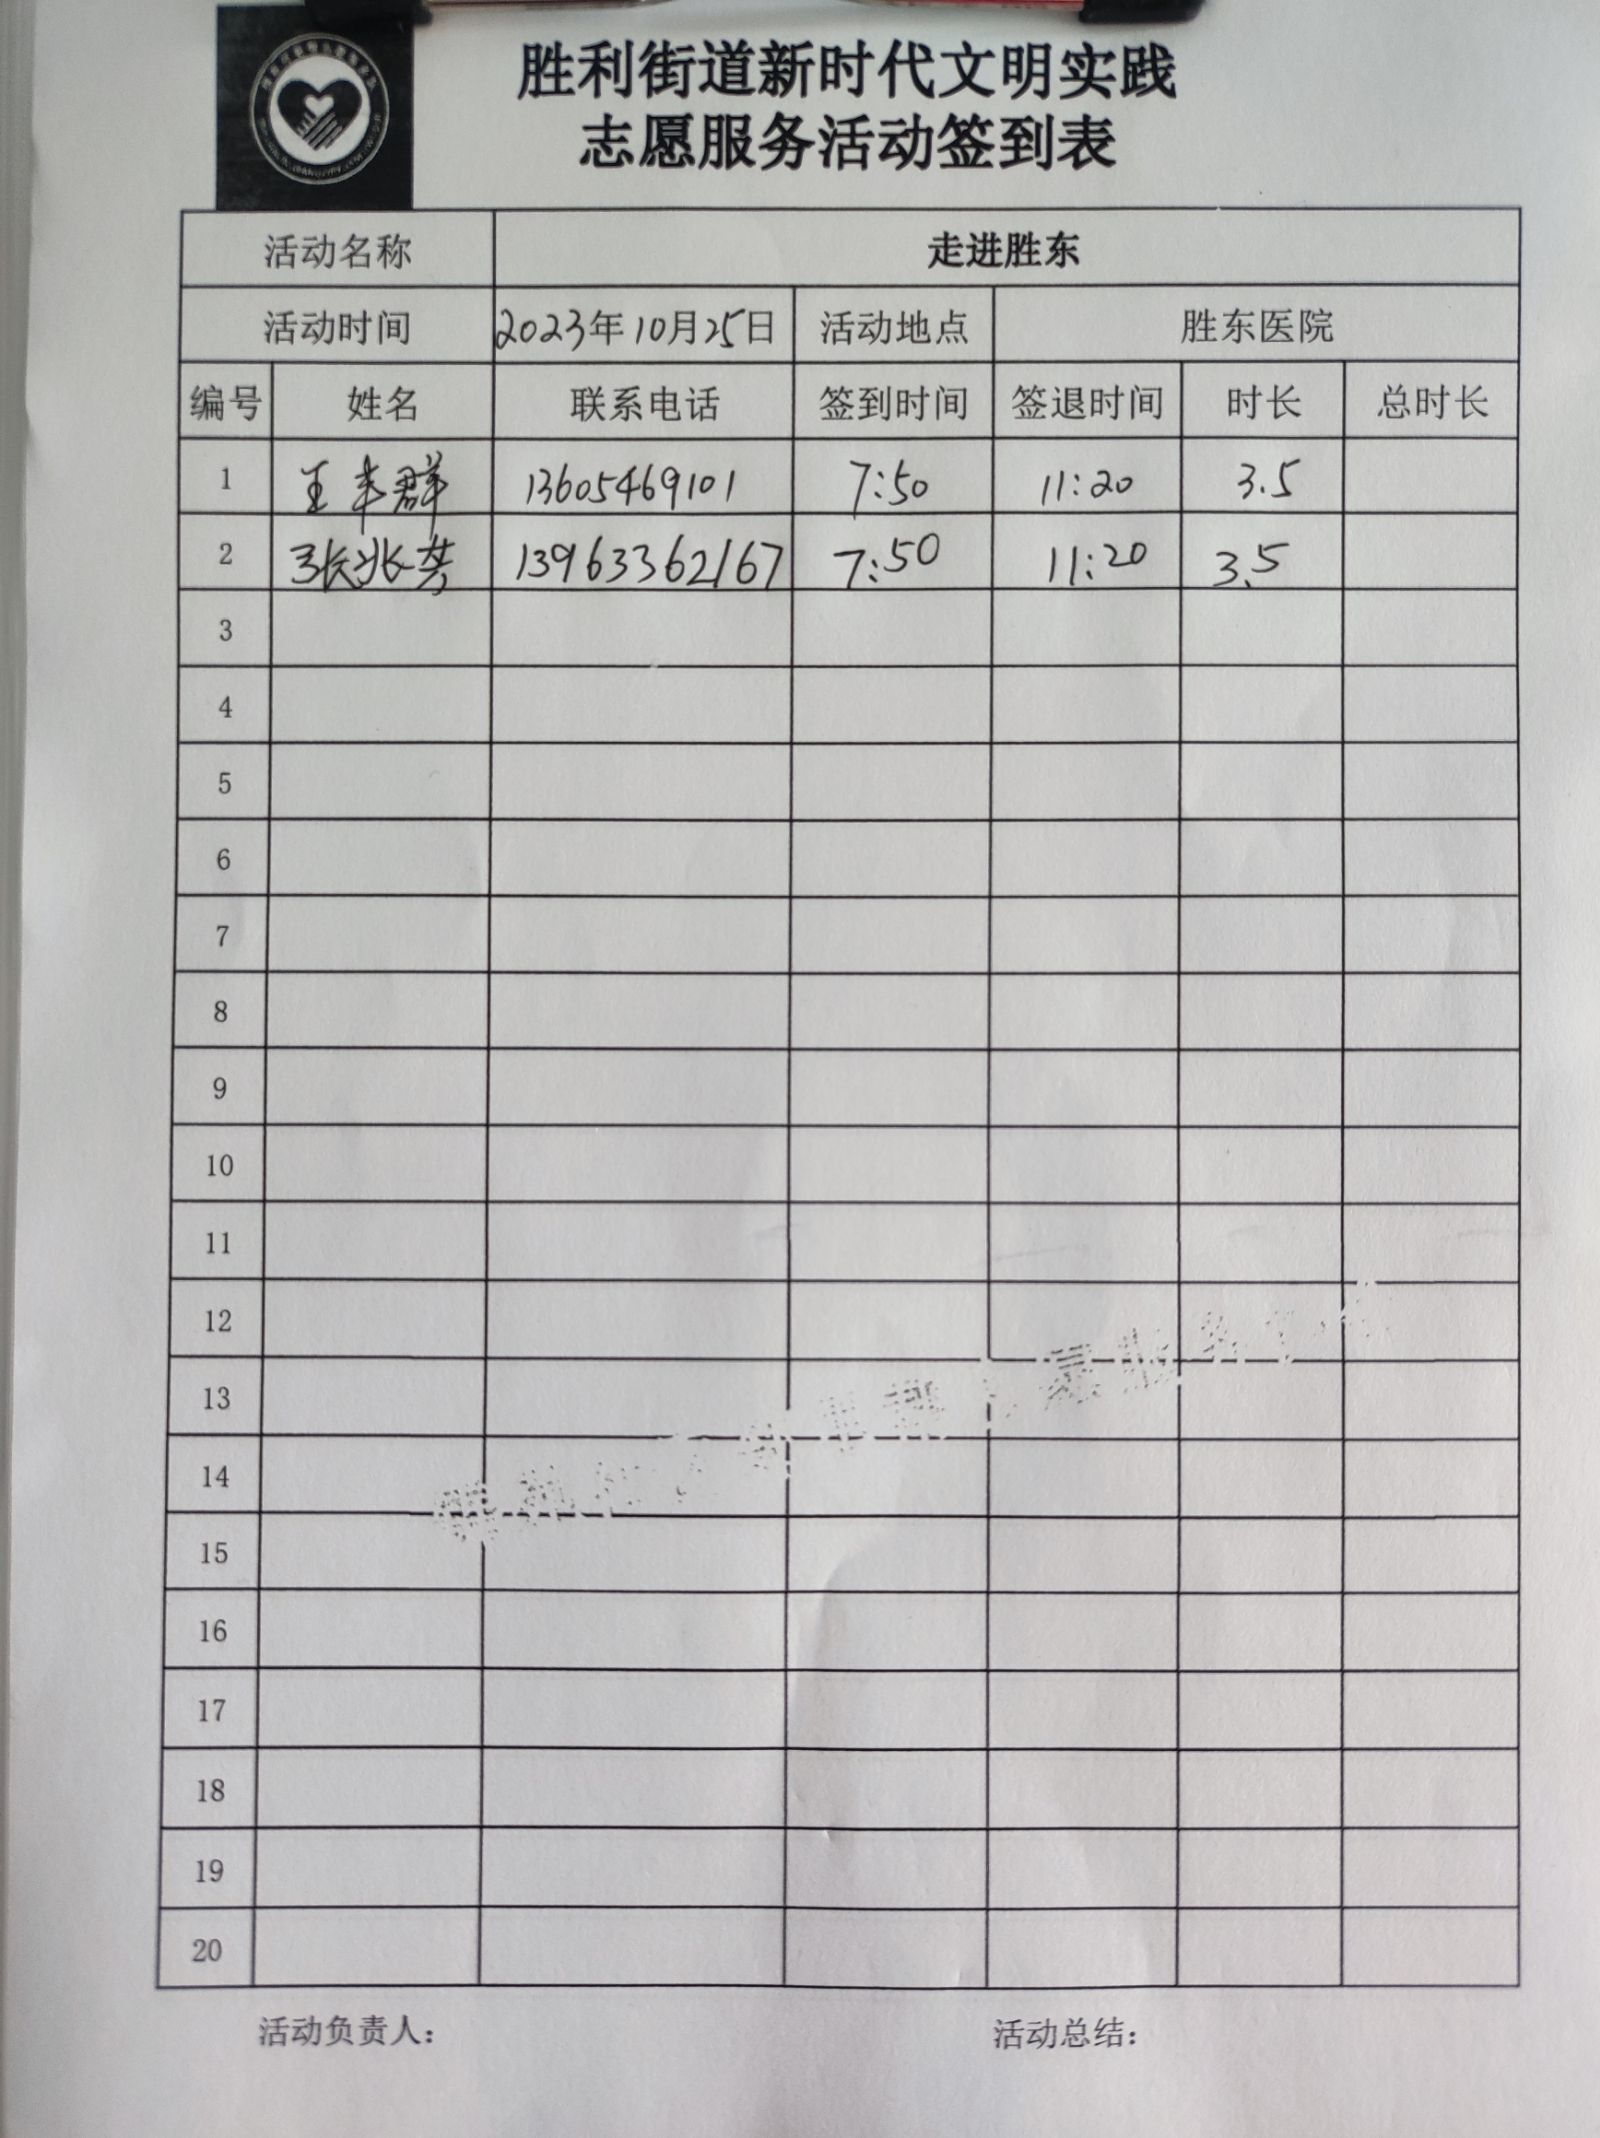 胜利街道新时代文明实践
志愿服务活动签到表
活动名称 走进胜东
活动时间 2023年10月25日 活动地点 胜东医院
编号 姓名 联系电话 签到时间 签退时间 时长 总时长
1 王丰群 13605469101 7:50 11:20 3.5
2 张兆英 13963362167 7:50 11:20 3.5
3
4
5
6
7
8
9
10
11
12
13
14
15
16
17
18
19
20
活动负责人： 活动总结：